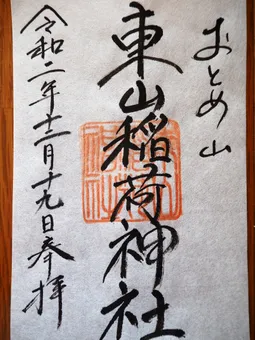 おとめ山
東山稲荷神社
令和二年十二月十九日奉拝